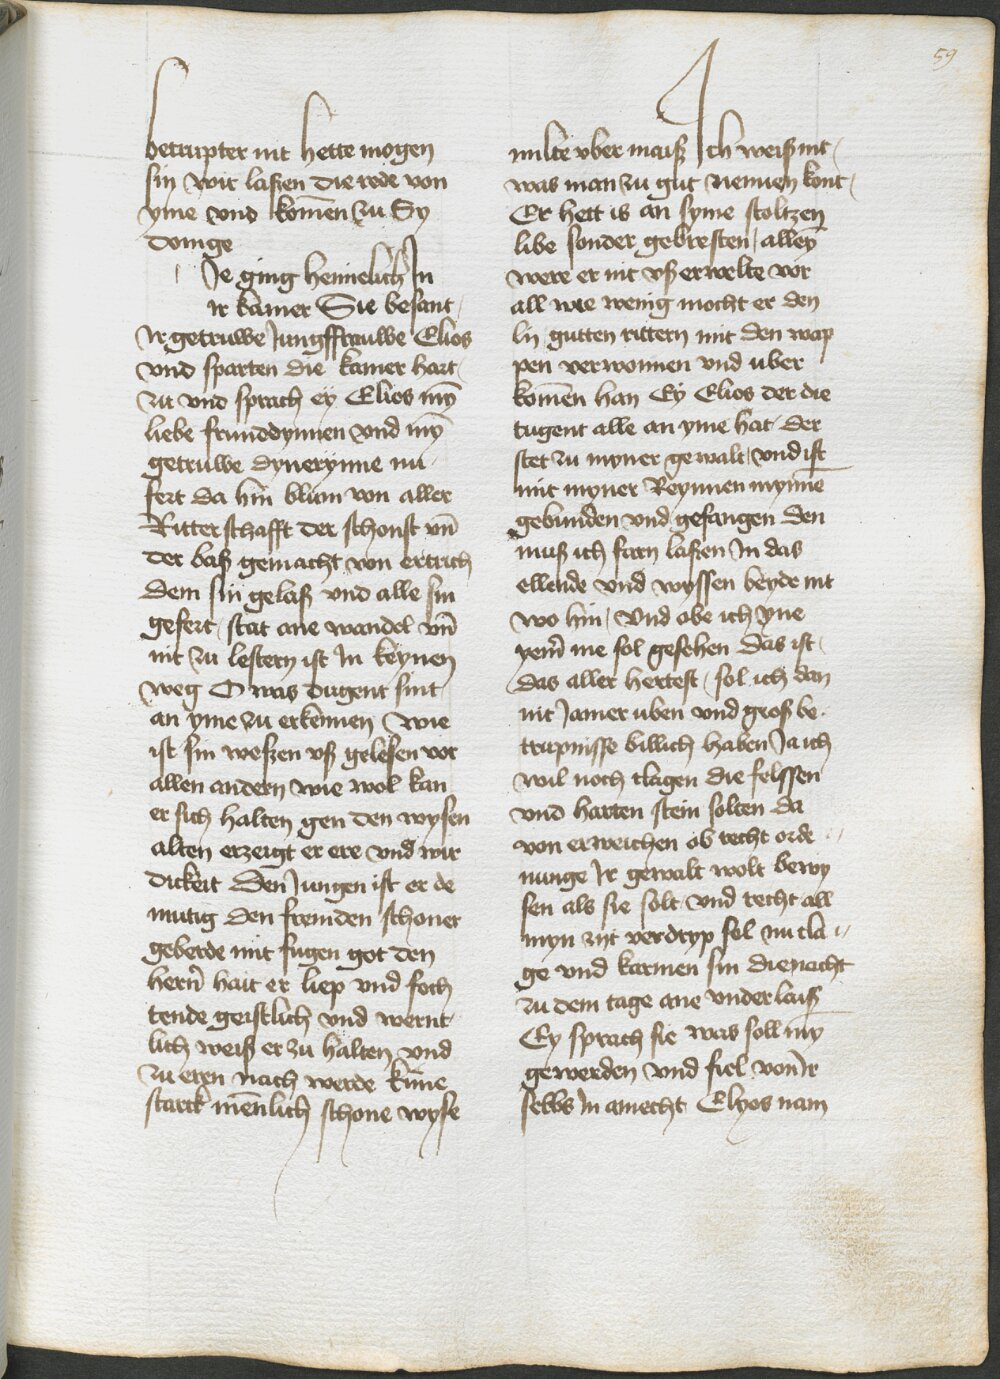 59
betrupter nit hette mogen
sin wir laßen die rede von
yme vnd komen zu Sy
doinge
Ie ging heimelich In
ir kamer Sie besant
Ir getruwe Jungffrauwe Elios
vnd sparten die kamer hart
zu vnd sprach ey Elios my̅
liebe frunddynnen vnd my̅
getruwe dynerynne nu
fert da hin blum von aller
Ritterschafft der schonst vn̅
der baß gemacht von ertrich
dem sin gelaß vnd alle sin
gefert stat ane wandel vn̅
nit zu lestern ist In keynen
weg O was dugent sint
an yme zu erkennen Wie
ist sin weßen vß gelesen vor
allen andern wie wol kan
er sich halten gen den wysen
alten erzeigt er ere vnd wir
dickeit Den Jungen ist er de
mutig den fremden schoner
geberde mit fugen got den
hern̅ hait er liep vnd foch
tende geistlich vnd wernt
lich weiß er zu halten vnd
zu eren nach werde ku̅ne
starck me̅nlich schone wyse
milte vber maiß Ich weiß nit
was man zu gut nennen kont
Er hett is an syme stoltzen
libe sonder gebresten alley̅
were er nit vß erwelte vor
all wie wenig mocht er den
lij gutten rittern mit den wap
pen verwonnen vnd uber
kome̅n han Ey Elios der die
tugent alle an yme hat der
stet zu myner gewalt vnd ist
mit myner Reynnen mynne
gebunden vnd gefangen den
muß ich farn laßen In das
ellende vnd wyssen beyde nit
wo hin Vnd obe ich yne
yem̅ me sol gesehen das ist
das aller hertest sol ich dan
nit Jamer uben vnd groß be
trupnisse billich haben Ja ich
wil noch clagen die felssen
vnd harten stein solten da
von erweichen ob recht orde
nunge Ir gewalt wolt bewy
sen als sie solt vnd recht all
myn zijt verdryp sol nu cla
ge vnd karmen sin die nacht
zu dem tage ane vnderlaiß
Ey sprach sie was soll my̅
gewerden vnd fiel von Ir
selbs In amecht Elyos nam